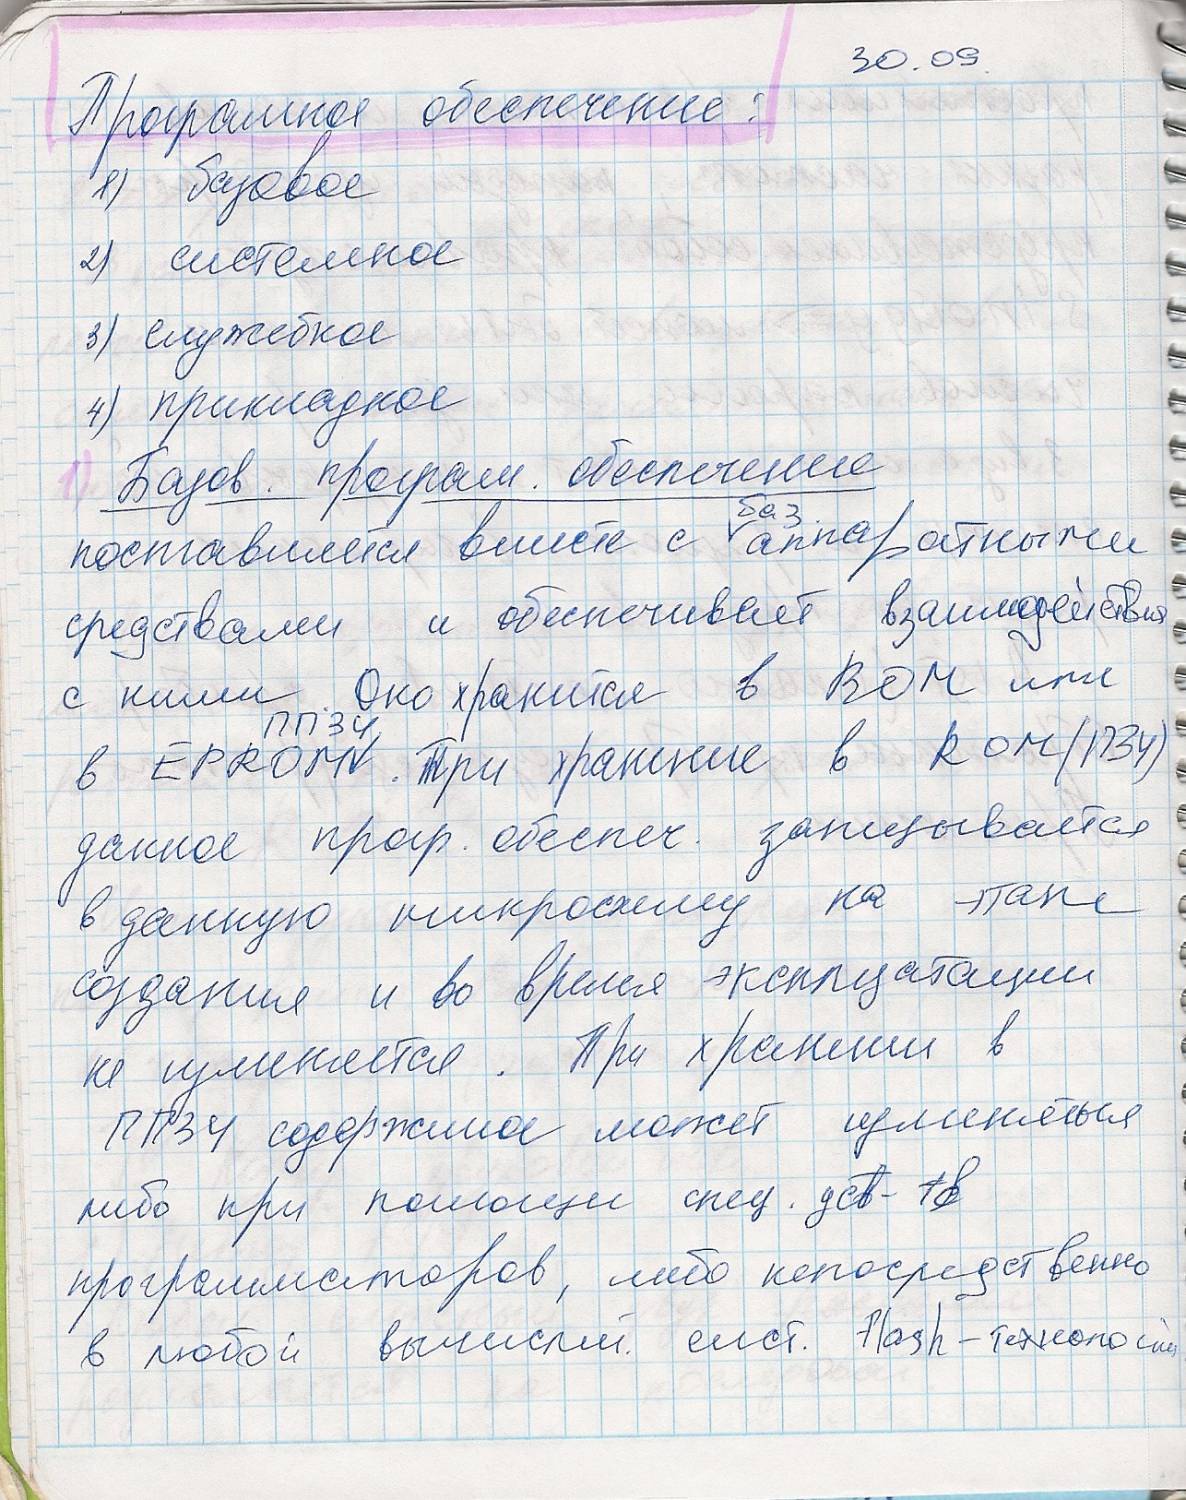 30.09.
Програмное обеспечение:
1) базовое
2) системное
3) служебное
4) прикладное
1) Базов. програм. обеспечение
поставляется вместе с баз. аппаратными
средствами и обеспечивает взаимодействия
с ними. Оно хранится в ROM или
в EPROM ППЗУ. При хранение в ROM (ПЗУ)
данное прогр. обеспеч. записывается
в данную микросхему на этапе
создания и во время эксплуатации
не изменяется. При хранении в
ППЗУ содержимое может изменяться
либо при помощи спец. уст-тв
программаторов, либо непосредственно
в любой вычислит. сист. Flash-технологии